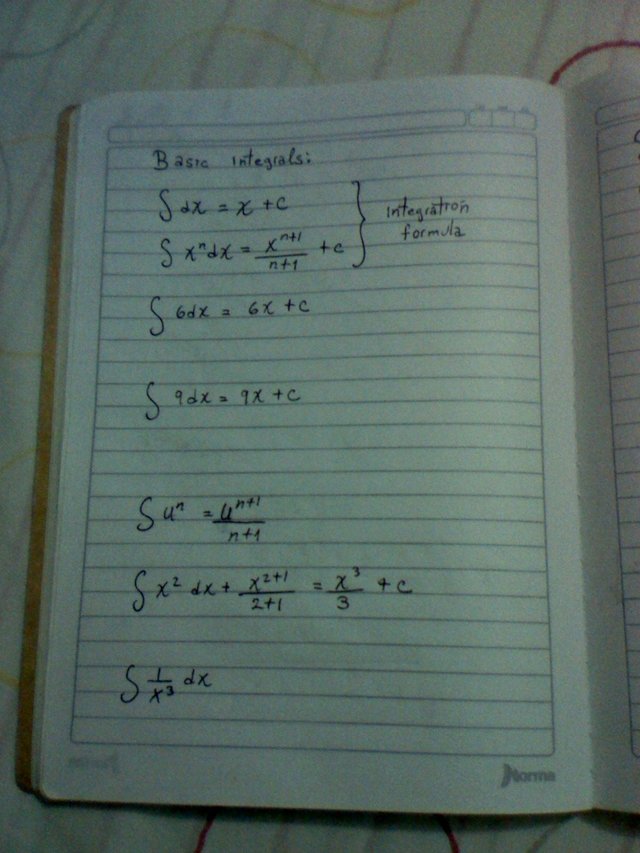 Basic integrals:
∫ dx = x + c
∫ xⁿ dx = xⁿ⁺¹/n+1 + c
integration
formula
∫ 6dx = 6x + c
∫ 9dx = 9x + c
∫ uⁿ = uⁿ⁺¹/n+1
∫ x² dx + x²⁺¹/2+1 = x³/3 + c
∫ 1/x³ dx
Norma